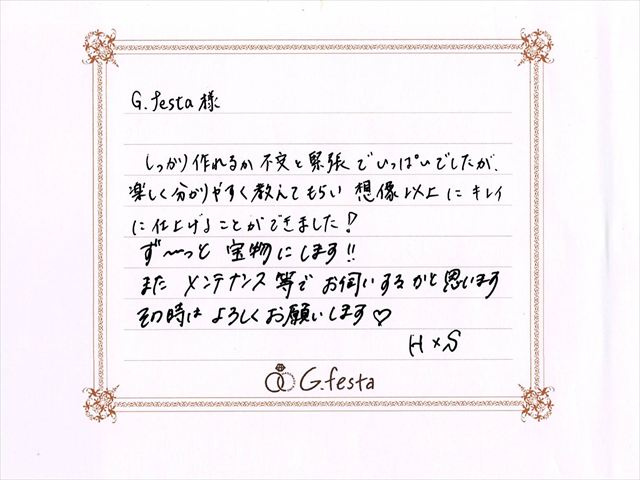 G.festa 様
しっかり作れるか不安と緊張でいっぱいでしたが、
楽しく分かりやすく教えてもらい 想像以上にキレイ
に仕上げることができました!
ず〜っと 宝物にします!!
また メンテナンス等で お伺いするかと思います
その時は よろしくお願いします♡
H×S
G.festa